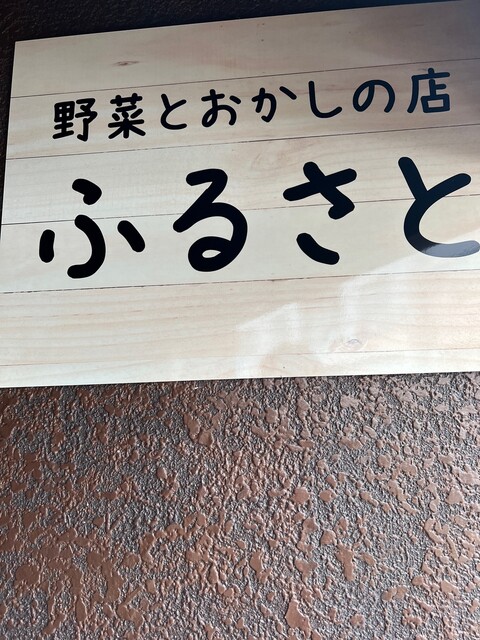 野菜とおかしの店
ふるさと